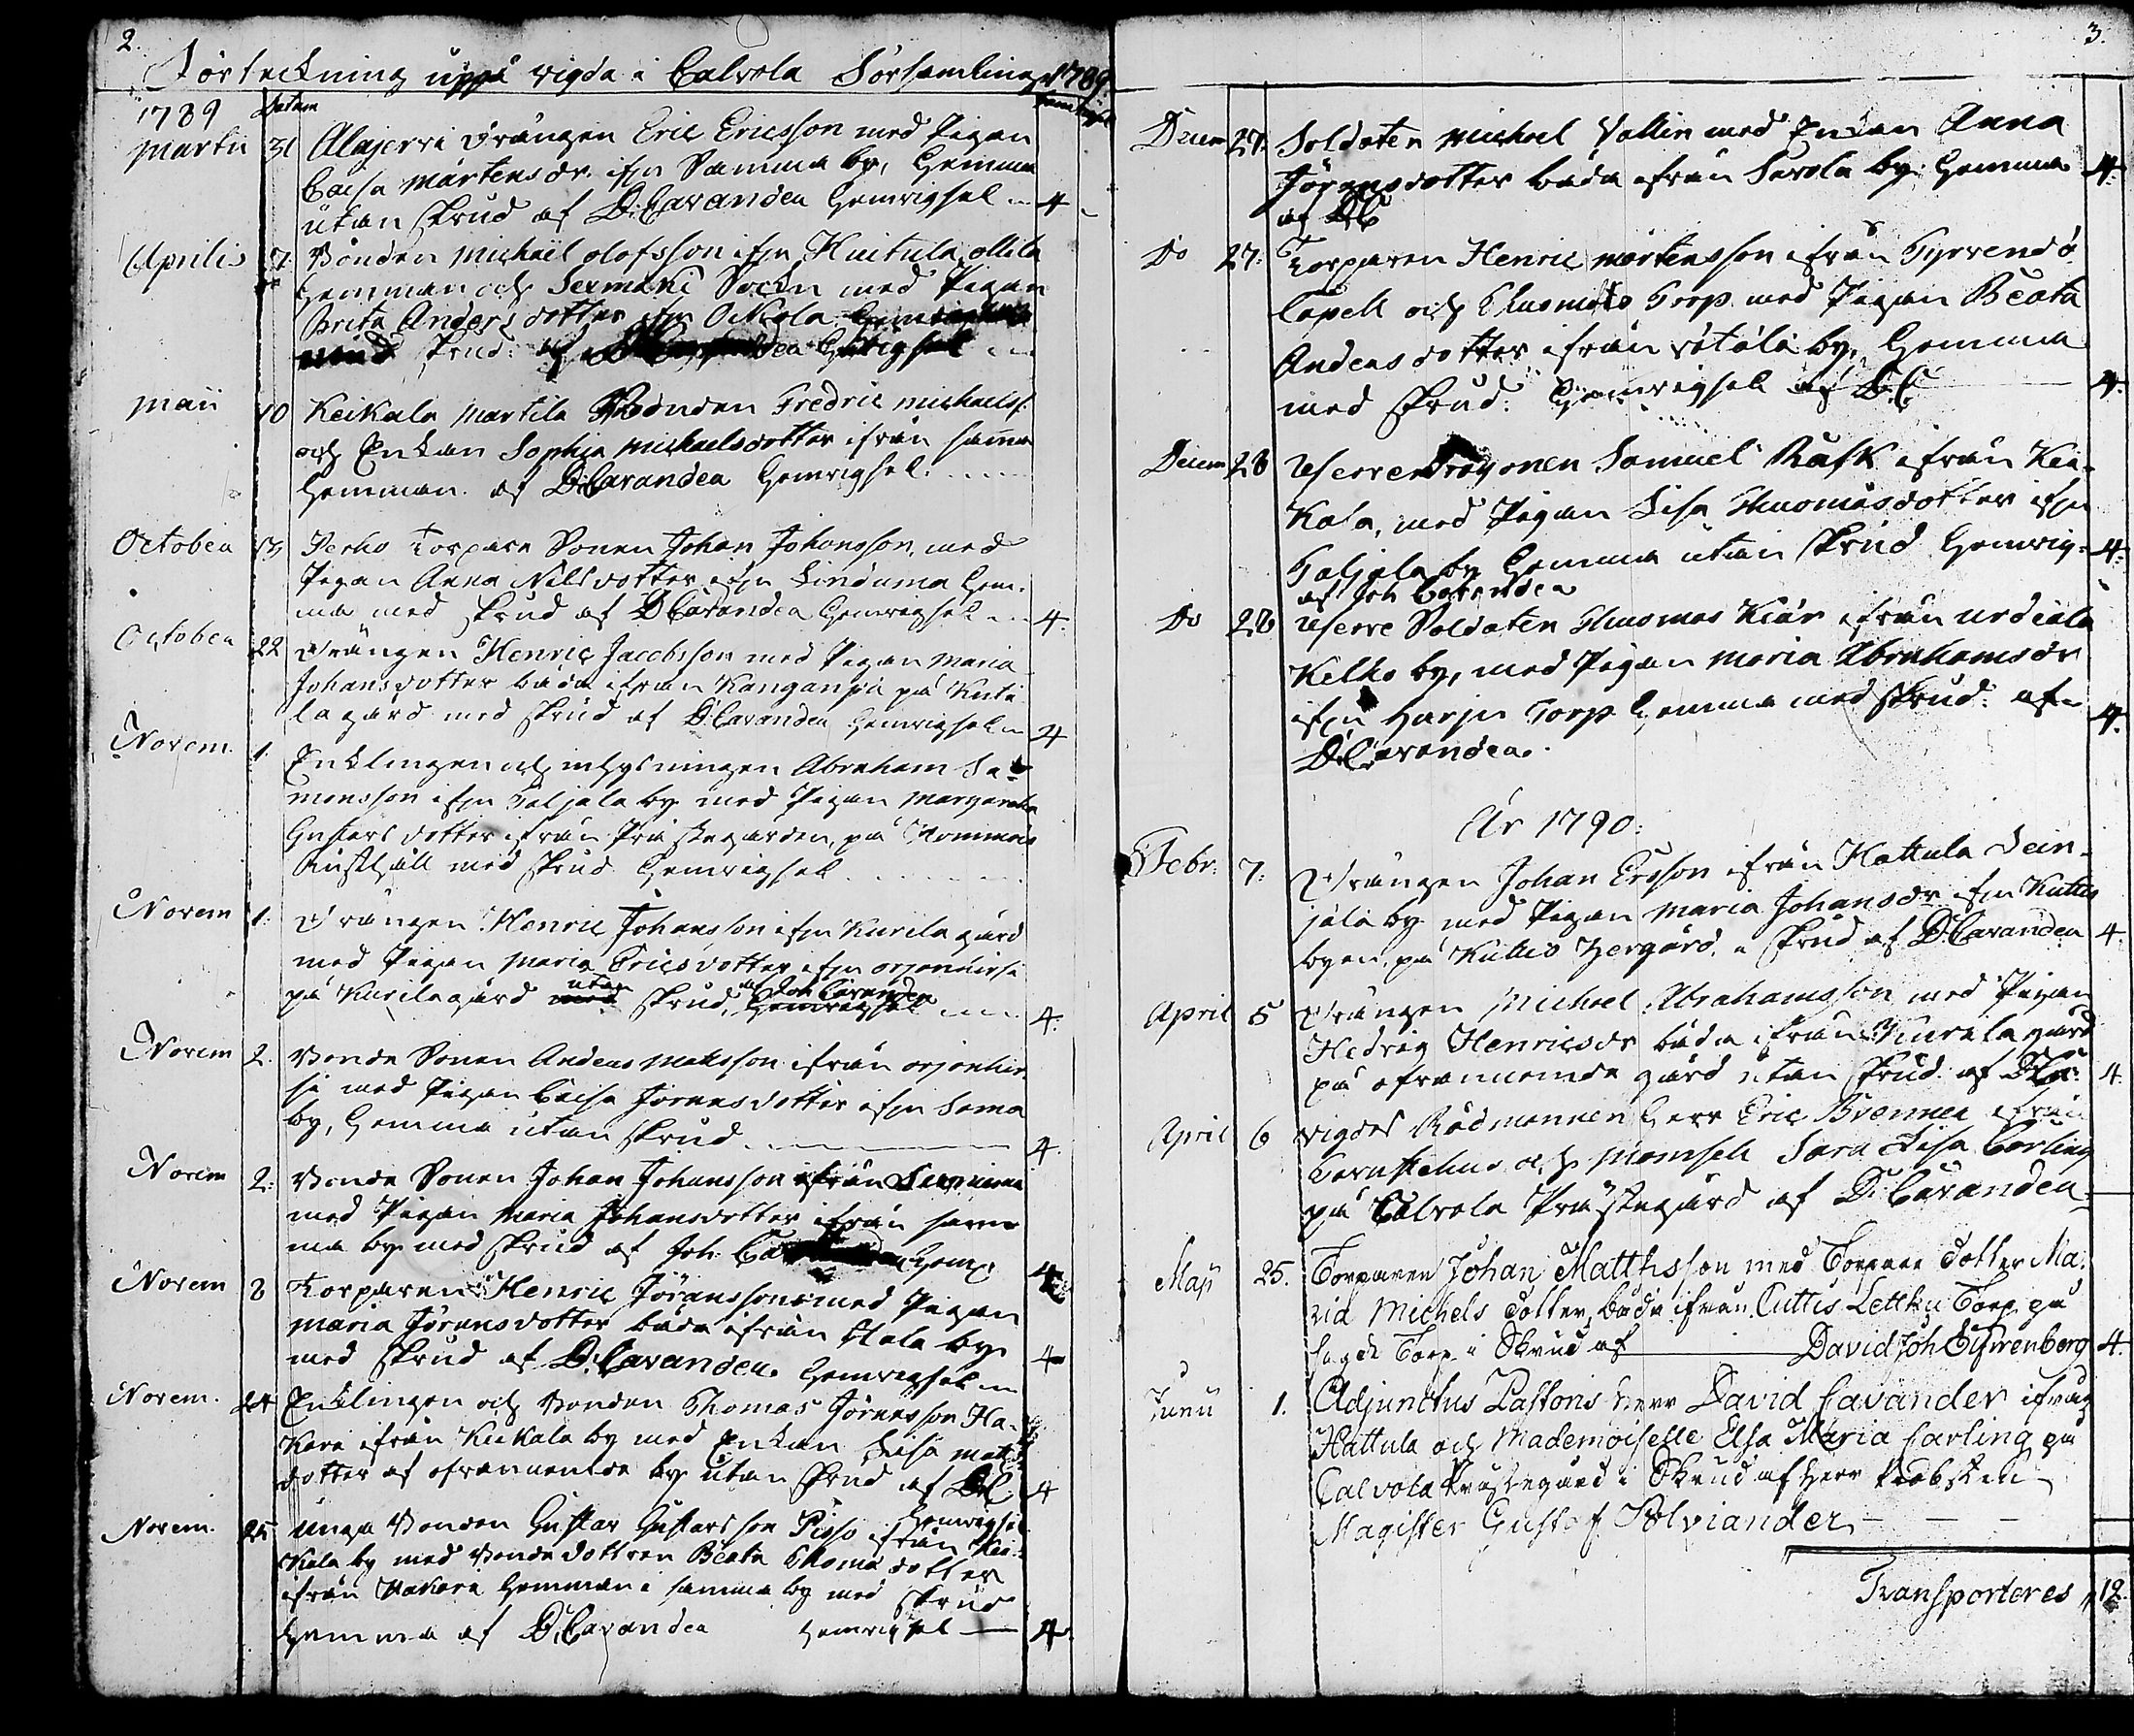 2.
Förteckning uppå vigda i Calvola Församling 1789.
1789 Datum
Martii 31 Alajerri Drängen Eric Ericsson med Pigan
Caisa Mårtensdr. ifrn Samma by, Hemma
utan skrud af D: Cavander Hemvigsel 4
Aprilis 7 Bonden Michaël Olofsson ifrn Huitula ollila
Hemman och Sexmäki Sockn med Pigan
Brita Anders dotter ifrn Ockola
skrud:
Maii 10 Keikala Martila Bonden Fredric Michaelss.
och Enkan Sophia Michaelsdotter ifrån samma
Hemman. af D: Cavander Hemvigsel.
October 13 Perko Torpare Sonen Johan Johansson, med
Pigan Anna Nilsdotter, ifrn Linduma Hem-
ma med skrud af D Cavander Hemvigsel 4.
October 22 Drängen Henric Jacobsson med Pigan Maria
Johansdotter båda ifrån Kanganpä på Kuti
la gård med skrud af D: Cavander Hemvigsel 4
Novem. 1. Enklingen och inhysningen Abraham Sa-
monsson ifrn Taljala by med Pigan Margareta
Gustavs dotter ifrån Prästegården, på
Rusthåll med skrud Hemvigsel
Novem 1. Drängen Henric Johansson ifrn Kurila gård
med Pigan Maria Ericsdotter ifrn orjanhirsi
på Kurila gård med utan skrud, af Joh Cavander Hemvigsel 4.
Novem 2. Bonde Sonen Anders Matsson ifrån orjanhir-
si med Pigan Caisa Jöransdotter ifrn Sama
by, Hemma utan skrud 4.
Novem 2: Bonde Sonen Johan Johansson ifrån
med Pigan Maria Johansdotter ifrån sam-
ma by med skrud af Joh. Hem. 4
Novem 8 Torparen Henric Jöransson med Pigan
Maria Jöransdotter båda ifrån Ahla by
med skrud af D. Cavander. Hemvigsel 4
Novem. 24 Enklingen och Bonden Thomas Jöransson Ha-
kara ifrån Keikala by med Enkan Lisa Mats
dotter af ofvannemde by utan skrud af D.C 4
Hemvigsel
Novem. 25 unga Bonden Gustav Gustavsson Piso ifrån Kei-
kala by med Bonde dottren Beata Thomä dotter
ifrån Hakara Hemman i samma by med skrud
Hemma af D. Cavander Hemvigsel 4.
3.
Decem 27. Soldaten Michael Vallin med Enkan Anna
Jöransdotter båda ifrån Savola by. Hemma 4.
af DC
Do 27: Torparen Henric Mårtensson ifrån Tyrvendö
Capell och Torp. med Pigan Beata
Andersdotter ifrån rötölä by, Hemma
med skrud. Hemvigsel af D.C. 4.
Decem 28 Dragonen Samuel Rask ifrån Kei-
kala, med Pigan Lisa Thuomasdotter ifrn
Taljala by Hemma utan skrud Hemvig- 4.
af Joh Cavander
Do 28 Soldaten Thuomas Kiär ifrån urdiala
Kelko by, med Pigan Maria Abrahamsdr
ifrn Harju Torp Hemma med skrud. af 4.
D. Cavander.
År 1790:
Febr: 7. Drängen Johan Ersson ifrån Hattula Lein-
jälä by med Pigan Maria Johansdr ifrn Kuttis
byen, på Kuttis i skrud af D. Cavander 4.
April 5 Drängen Michael Abrahamsson med Pigan
Hedvig Henricsdr båda ifrån Kurala gård
på ofvannemde gård utan skrud af D Ca: 4.
April 6 vigdes Rådmannen Herr Eric Brenner ifrån
Tavastehus och Mamsell Sara Lisa Carling
på Calvola Prästegård af D. Cavander
Maji 25. Torparen Johan Matthsson med Torpare dotter Ma-
ria Michels dotter, både ifrån Cuttis Lettku Torp på
sagde Torp i Skrud af David Joh Eifwrenberg 4.
Junii 1. Adjunctus Pastoris Herr David Cavander ifrån
Hattula och Mademoiselle Elsa Maria Carling på
Calvola Prästegård i Skrud af Herr Probsten
Magister Gustaf Polviander
Transporteres 12.